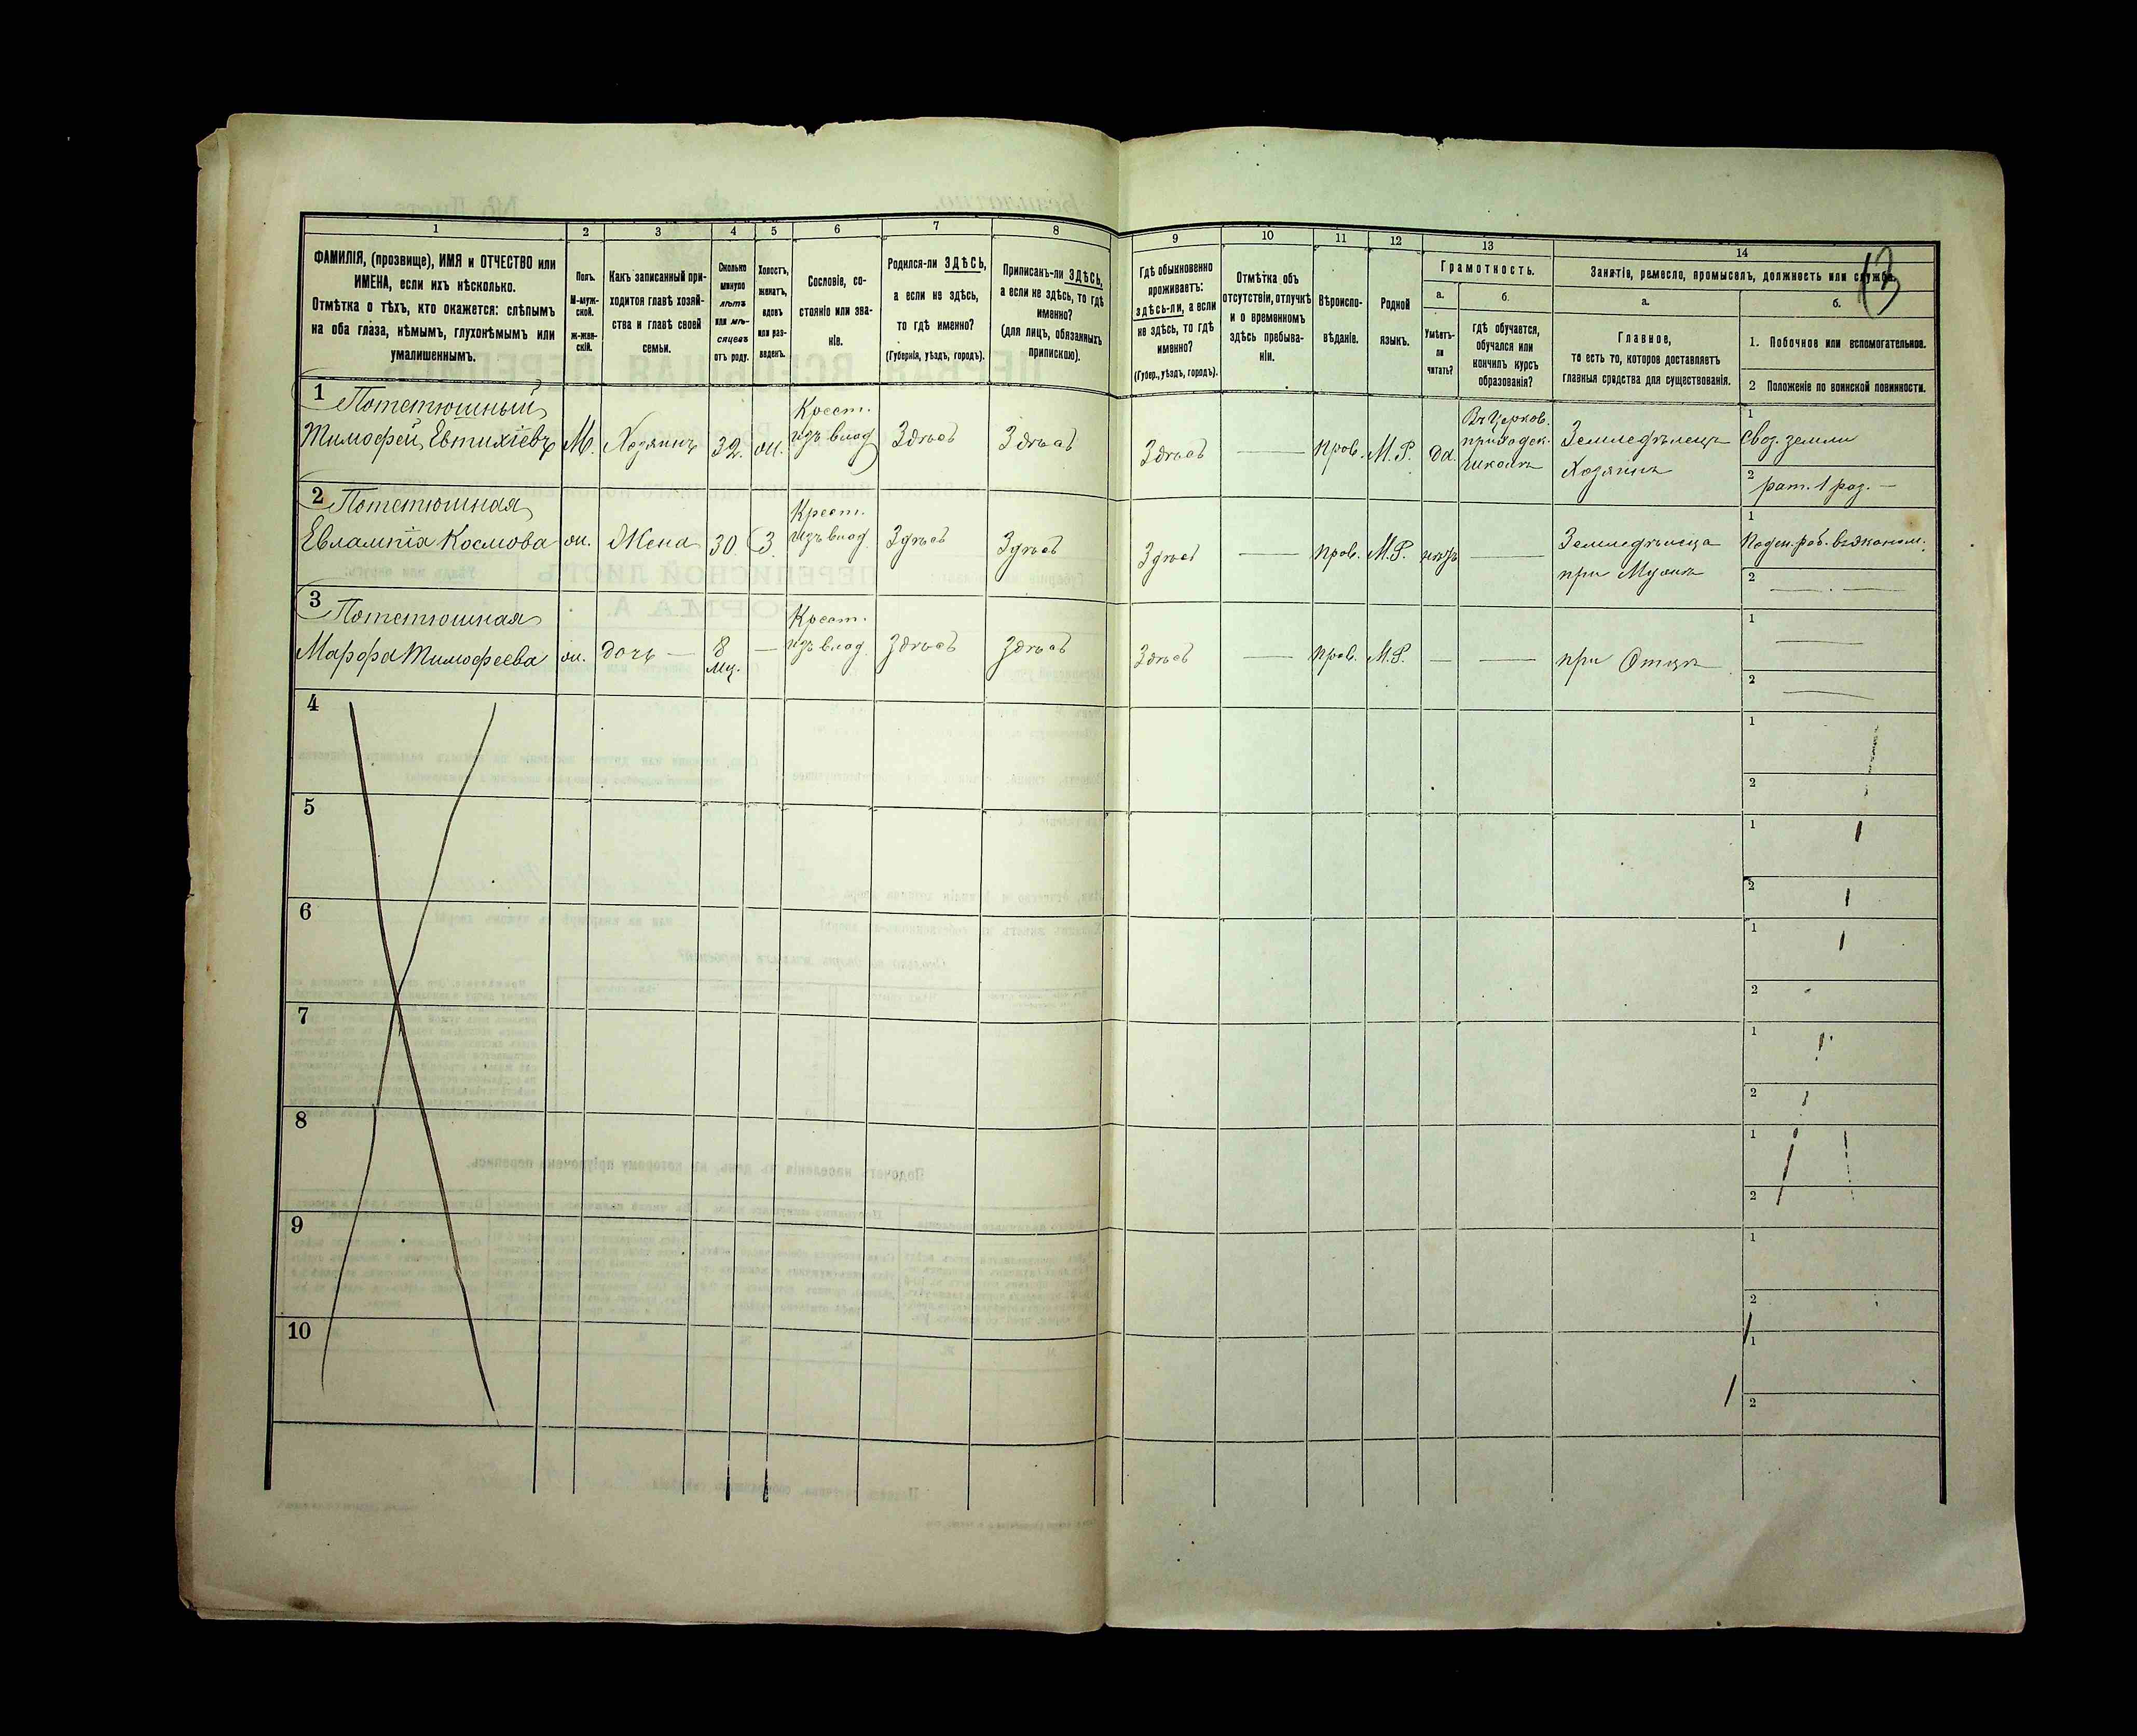 1 2 3 4 5 6 7 8 9 10 11 12 13 14
ФАМИЛІЯ, (прозвище), ИМЯ и ОТЧЕСТВО или
ИМЕНА, если ихъ нѣсколько.
Отмѣтка о тѣхъ, кто окажется: слѣпымъ
на оба глаза, нѣмымъ, глухонѣмымъ или
умалишеннымъ.
Полъ.
М-муж-
ской.
ж-жен-
скій.
Какъ записанный при-
ходится главѣ хозяй-
ства и главѣ своей
семьи.
Сколько
минуло
лѣтъ
или мѣ-
сяцевъ
отъ роду.
Холостъ,
женатъ,
вдовъ
или раз-
веденъ.
Сословіе, со-
стояніе или зва-
ніе.
Родился-ли ЗДѢСЬ,
а если не здѣсь,
то гдѣ именно?
(Губернія, уѣздъ, городъ).
Приписанъ-ли ЗДѢСЬ,
а если не здѣсь, то гдѣ
именно?
(для лицъ, обязанныхъ
припискою).
Гдѣ обыкновенно
проживаетъ:
здѣсь-ли, а если
не здѣсь, то гдѣ
именно?
(Губер., уѣздъ, городъ).
Отмѣтка объ
отсутствіи, отлучкѣ
и о временномъ
здѣсь пребыва-
ніи.
Вѣроиспо-
вѣданіе.
Родной
языкъ.
Грамотность.
а.
Умѣетъ-
ли
читать?
б.
гдѣ обучается,
обучался или
кончилъ курсъ
образованія?
Занятіе, ремесло, промыселъ, должность или служба.
13
а.
Главное,
то есть то, которое доставляетъ
главныя средства для существованія.
б.
1. Побочное или вспомогательное.
2 Положеніе по воинской повинности.
1 Потетюшный
Тимофей Евтихіевъ
М.
Хозяинъ
32.
ж.
Крест.
изъ влад
Здѣсь
Здѣсь
Здѣсь
Прав.
М.Р.
да
Въ Церков.
приходск.
школѣ
Земледѣлецъ
Хозяинъ
1
земли
2 рат. 1 раз. —
2 Потетюшная
Евлампія Космова
ж.
Жена
30
З.
Крест.
изъ влад.
Здѣсь
Здѣсь
Здѣсь
прав.
М.Р.
нѣтъ
Земледѣлица
при Мужѣ
1
Поден. раб. въ эконом.
2
3 Потетюшная
Марфа Тимофеева
ж.
дочь —
8
мц.
Крест.
изъ влад.
Здѣсь
Здѣсь
Здѣсь
прав.
М.Р.
при Отцѣ
1
2
4
1
2
5
1
2
6
1
2
7
1
2
8
1
2
9
1
2
10
1
2